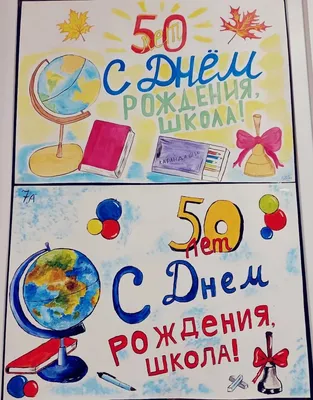 50
лет
С ДНЁМ
РОЖДЕНИЯ,
ШКОЛА!
7А
50
лет
С Днем
РОЖДЕНИЯ,
ШКОЛА!